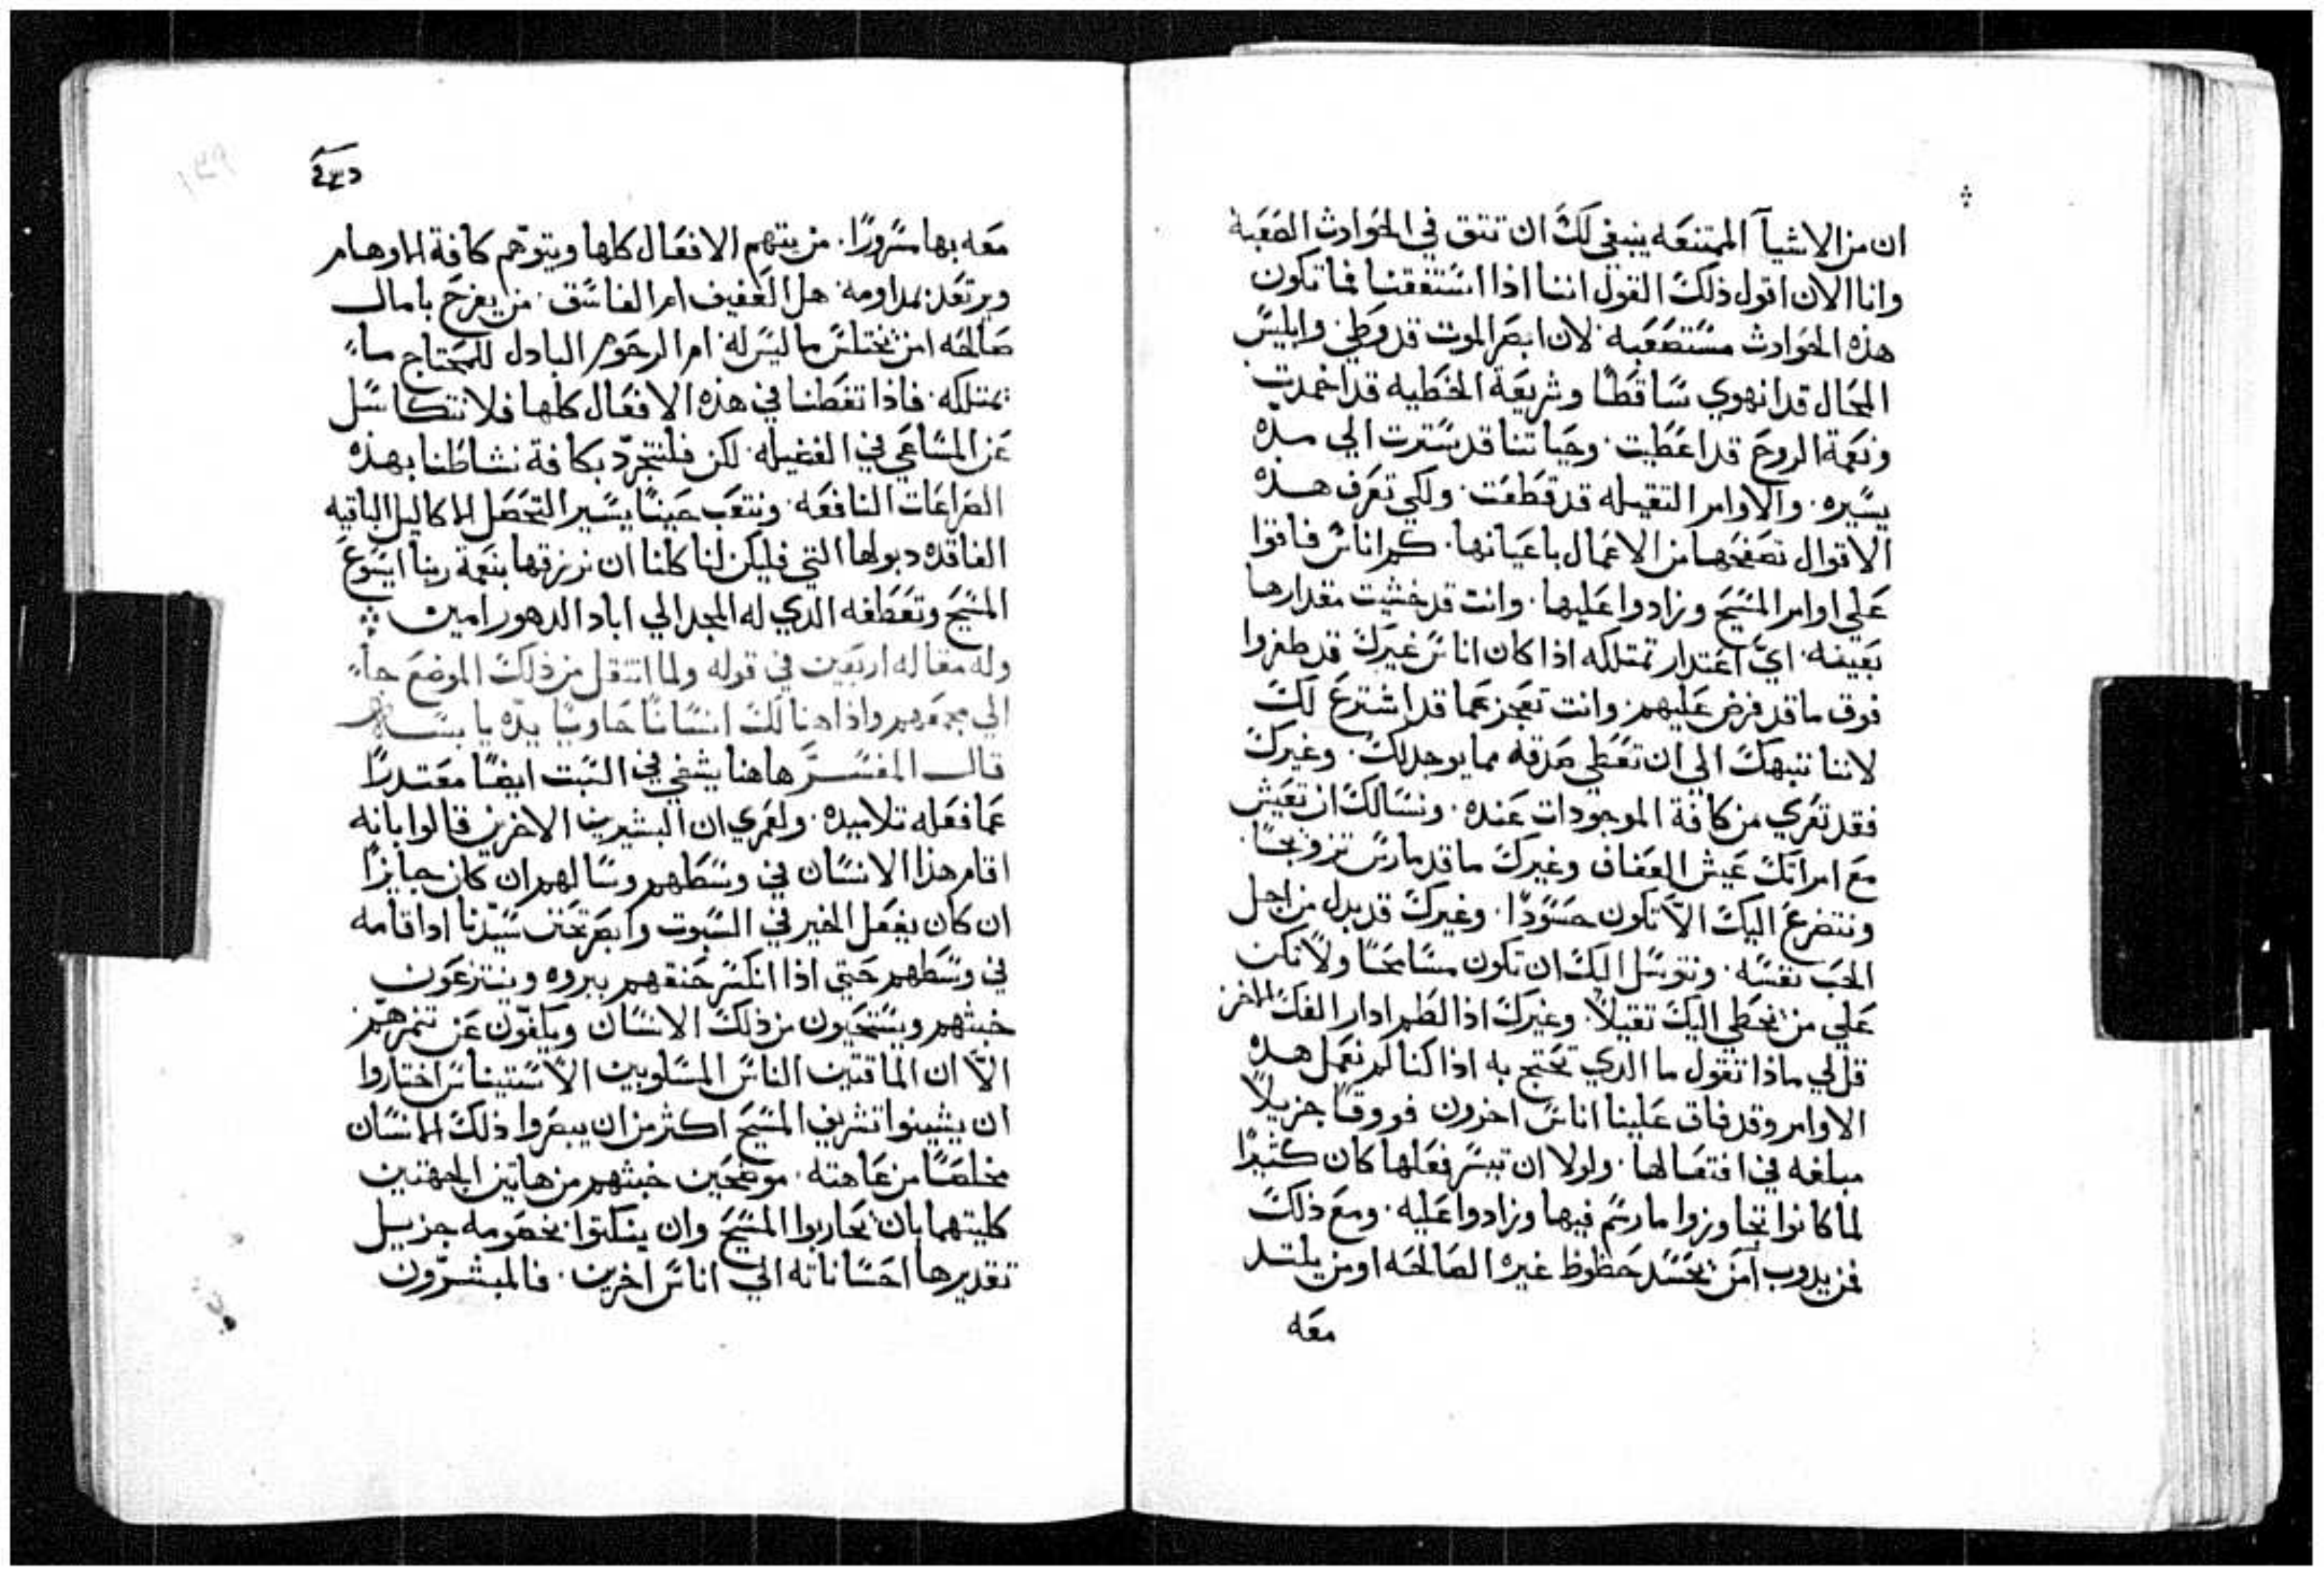 ان من الاشيآ الممتنعه ينبغي لك ان تتق في الحوادث الصعبة
وانا الان اقول ذلك القول اننا اذا استفقنا فما تكون
هذه الحوادث مستصعبه لان ابصر الموت قد وطي وابليس
المحال قد انهوي ساقطا وشريعة الخطيه قد اخمدت
ونعمة الروح قد اعطيت وحياتنا قد سترت الي مده
يسيره والاوامر التقيله قد قطعت ولكي تعرف هده
الاقوال تصفحها من الاعمال باعيانها كم اناس فاقوا
علي اوامر المسيح وزادوا عليها وانت قد خشيت مقدارها
بعينه اي اعتدار تمتلكه اذا كان اناس غيرك قد طفروا
فوق ما قد فرض عليهم وانت تعجز عما قد اشترع لك
لاننا ننبهك الي ان تعطي صدقه مما يوجد لك وغيرك
فقد تعري من كافة الموجودات عنده ونسالك ان تعيش
مع امراتك عيش العفاف وغيرك ما قد مارس تزويجا
ونتضرع اليك الا تكون حسودا وغيرك قد بدل من اجل
الحب نفسه ونتوسل اليك ان تكون مسامحا ولا تكن
علي من يخطي اليك تقيلا وغيرك اذا لطم ادار الفك الاخر
قل لي ماذا تقول ما الدي تحتج به اذا كنا لم نعمل هده
الاوامر وقد فاق علينا اناس اخرون فووقا جزيلا
مبلغه في افتعالها ولولا ان تيسر فعلها كان كثيرا
لما كانوا تجاوزوا ما رسم فيها وزادوا عليه ومع ذلك
فمن يدوب امن يحسد حظوظ غيره الصالحه او من يلتد
معه
معه بها مسرورا من يتهم الافعال كلها ويتوهم كافة الاوهام
ويرتعد بمداومه هل العفيف ام الفاسق من يفرح بامال
صالحه امن يختلس ما ليس له ام الرحوم البادل للمحتاج ماء
يمتلكه فاذا تفطنا في هذه الافعال كلها فلا نتكاسل
عن المساعي في الفضيله لكن فلنتجرد بكافة نشاطنا بهذه
الصراعات النافعه ونتعب حينا يسيرا لتحصل الاكاليل الباقيه
الفاقده دبولها التي فليكن لنا كلنا ان نرزقها بنعمة ربنا ايسوع
المسيح وتعطفه الدي له المجد الي اباد الدهور امين
وله مقاله اربعين في قوله ولما انتقل من ذلك الموضع جاء
الي مجمعهم واذا هنالك انسانا حاويا يده يابسه
قال المفسر هاهنا يشفي في السبت ايضا معتدرا
عما فعله تلاميده ولعمري ان البشيرين الاخرين قالوا بانه
اقام هذا الانسان في وسطهم وسالهم ان كان جايزا
ان كان يفعل الخير في السبوت وابصر تحنن سيدنا اد اقامه
في وسطهم حتي اذا انكسر حنقهم ببروه وينتزعون
خبثهم ويستحيون من ذلك الانسان ويكفون عن تنمرهم
الا ان الماقتين الناس المسلوبين الاستيناس اختاروا
ان يشينوا تشريف المسيح اكثر من ان يبصروا ذلك الانسان
مخلصا من عاهته موضحين خبثهم من هاتين الجهتين
كلتيهما بان يحاربوا المسيح وان ينكتوا بخصومه جزيل
تقديرها احساناته الي اناس اخرين فالمبشرون